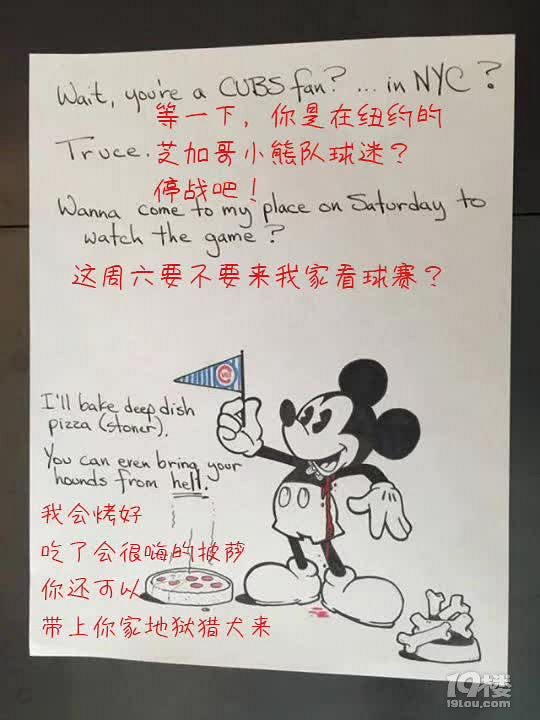 Wait, you're a CUBS fan? ... in NYC?
等一下，你是在纽约的
Truce. 芝加哥小熊队球迷？
停战吧！
Wanna come to my place on Saturday to
watch the game?
这周六要不要来我家看球赛？
I'll bake deep dish
pizza (stoner).
You can even bring your
hounds from hell.
我会烤好
吃了会很嗨的披萨
你还可以
带上你家地狱猎犬来
19楼
19lou.com